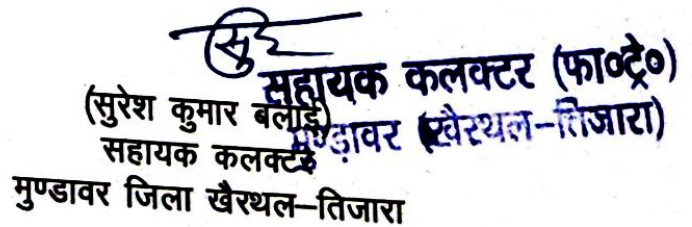 सहायक कलक्टर (फा०ट्रे०)
मुण्डावर (खैरथल-तिजारा)
(सुरेश कुमार बलाई)
सहायक कलक्टर
मुण्डावर जिला खैरथल-तिजारा